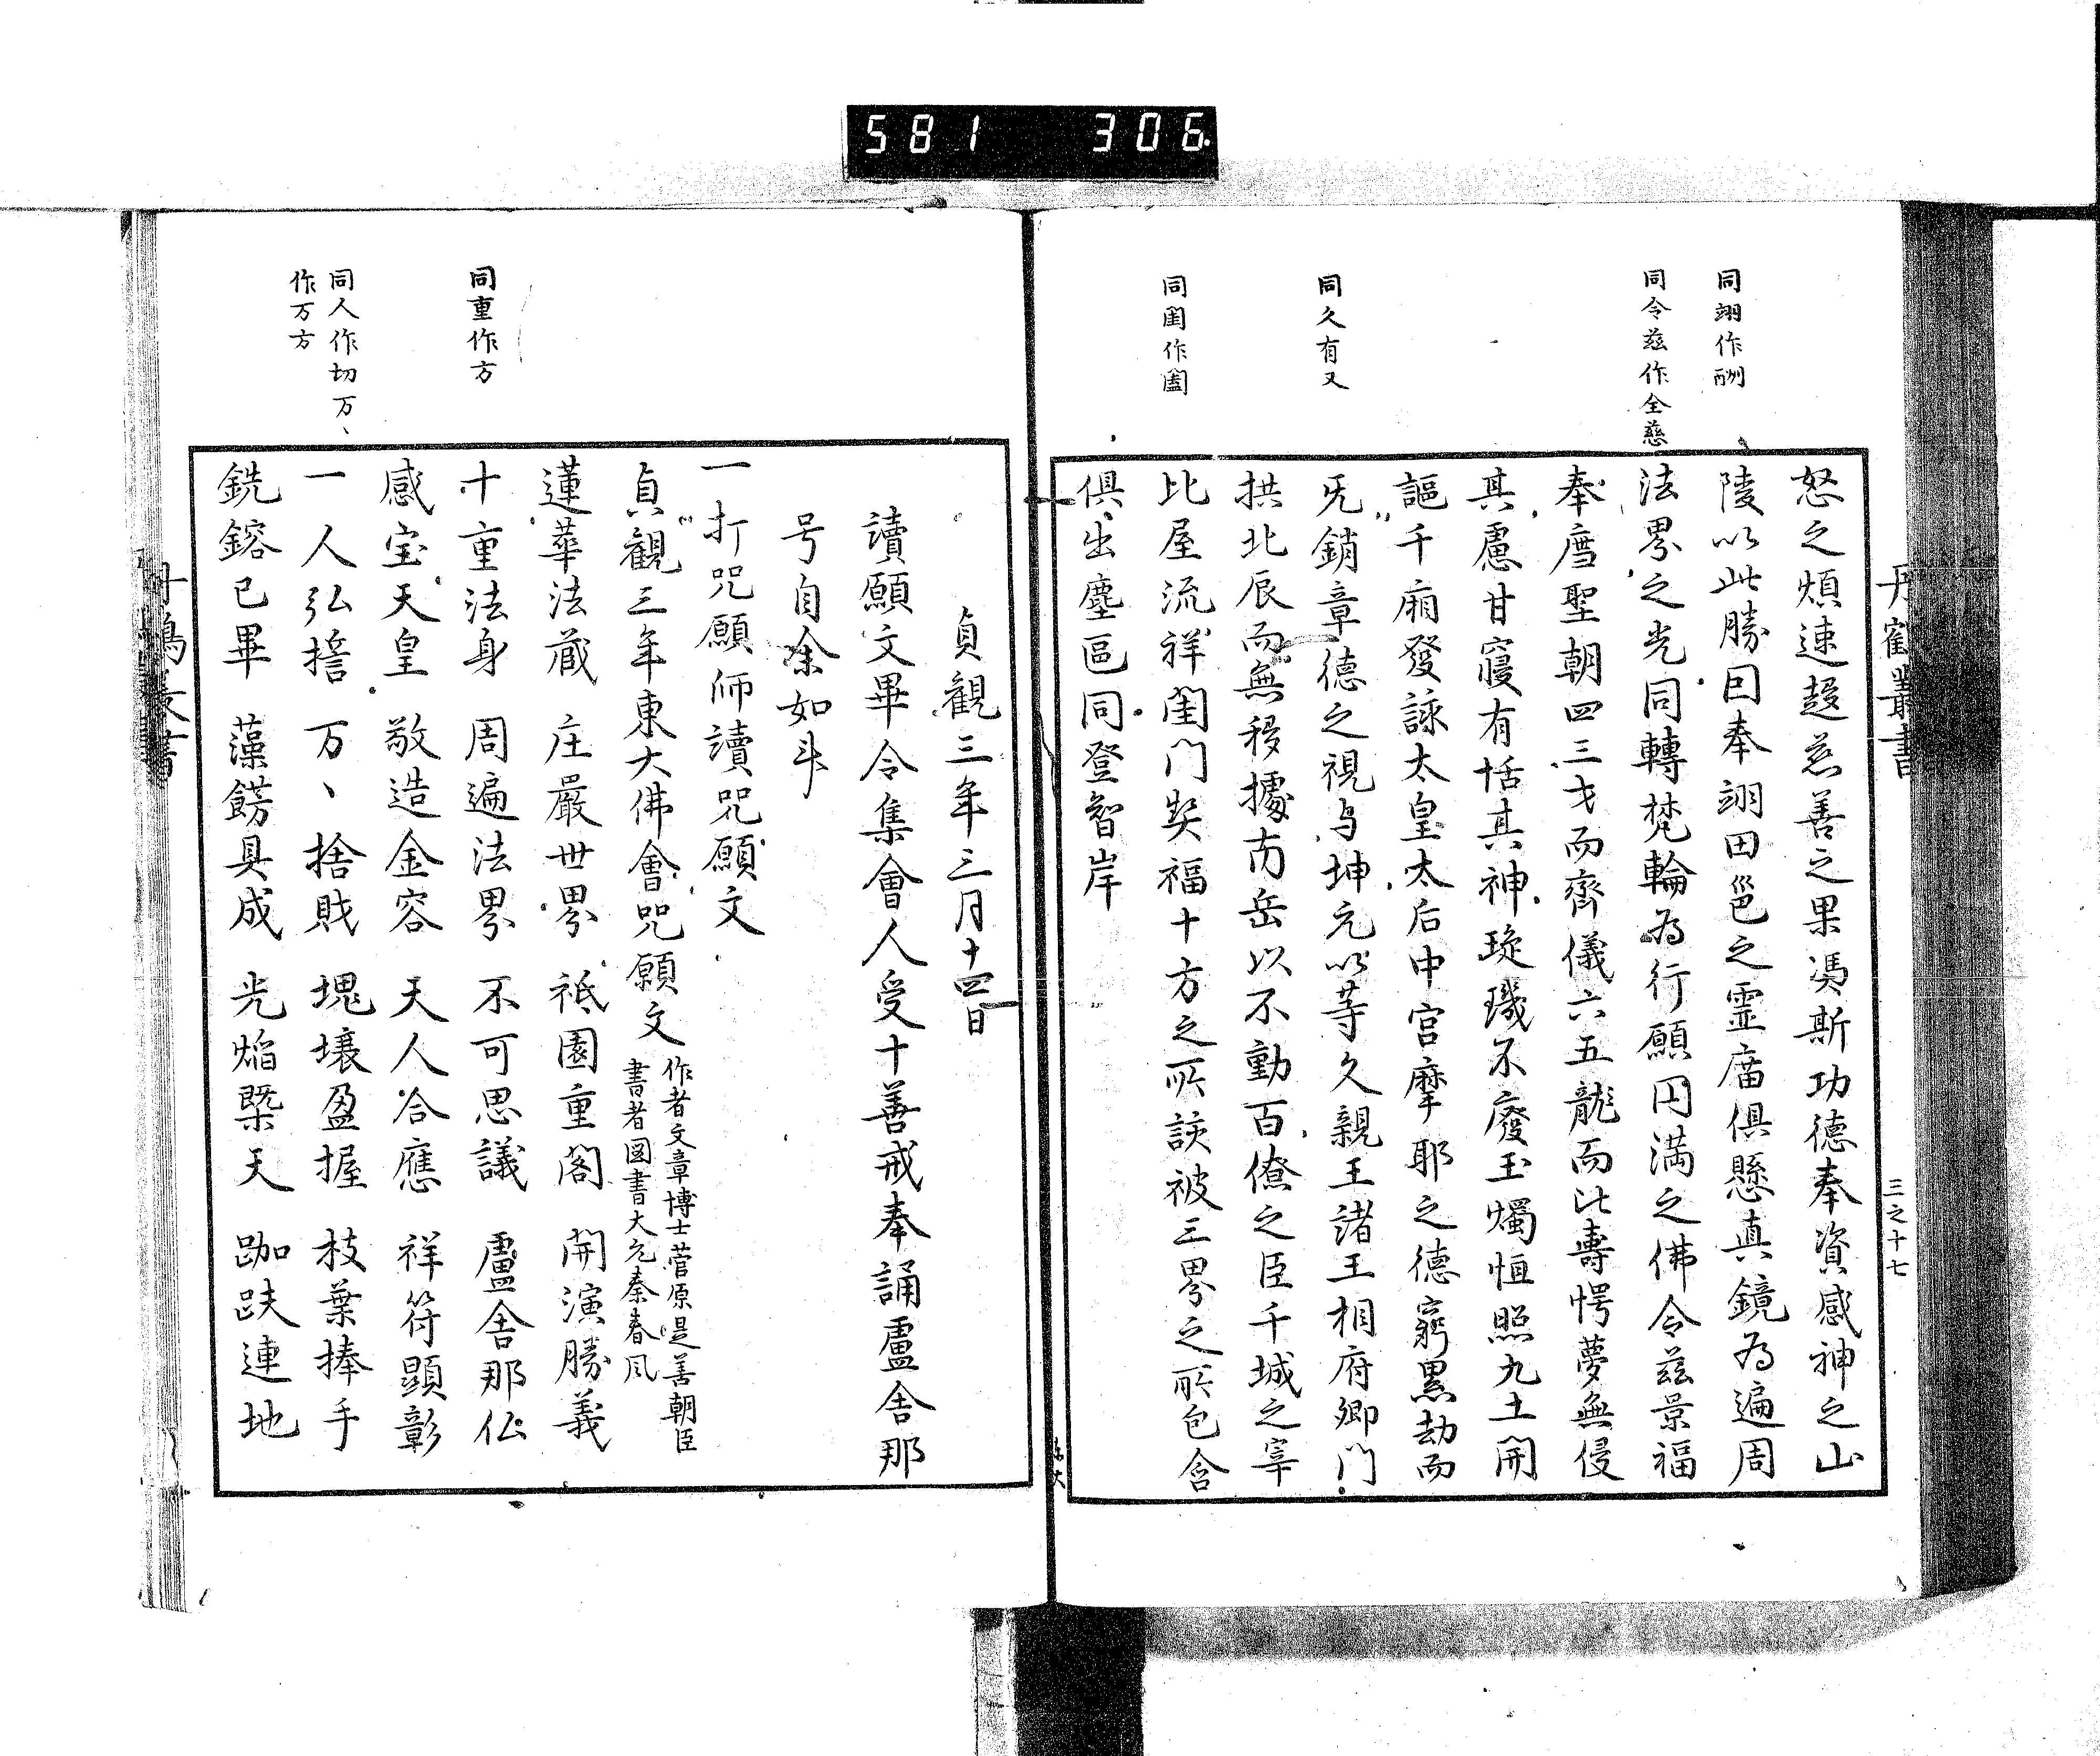 581 306
同翊作酬
同令茲作全慈
同久有又
同閨作闔
怒之煩速超慈善之果馮斯功徳奉資感神之山
陵以此勝因奉翊田邕之霊庿俱懸真鏡為遍周
法界之光同轉梵輪為行願円満之佛令茲景福
奉聖朝四三才而齊儀六五龍而比壽愕夢無侵
其慮甘寝有恬其神琁璣不廢玉燭恒照九土開
謳千廂發詠太皇太后中宮摩耶之徳窮黒劫而
旡銷章徳之視与坤元以等久親王諸王相府卿門
拱北辰而無移據南岳以不動百僚之臣千城之宰
比屋流祥閨門契福十方之所該被三界之所包含
俱出塵區同登智岸
丹鶴叢書
三之十七
同重作方
同人作切万、
作万方
貞觀三年三月十四日
讀願文畢令集會人受十善戒奉誦盧舍那
号自余如斗
一打咒願師讀咒願文
貞觀三年東大佛會咒願文
作者文章博士菅原是善朝臣
書者図書大允秦春風
蓮華法蔵 庄嚴世界 祇園重閣 開演勝義
十重法身 周遍法界 不可思議 盧舍那仏
感宝天皇 敬造金容 天人合應 祥符顕彰
一人弘誓 万、捨戝 塊壤盈握 枝葉捧手
銑鎔已畢 藻餝具成 光焔槩天 跏趺連地
丹鶴叢書